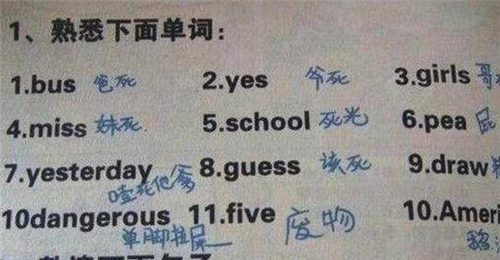 1、熟悉下面单词:
1.bus 爸死 2.yes 爷死 3.girls 哥
4.miss 妹死 5.school 死光 6.pea 屁
7.yesterday 8.guess 该死 9.draw
噎死他爹
10dangerous 11.five 废物 10.Ameri
单脚拉屎